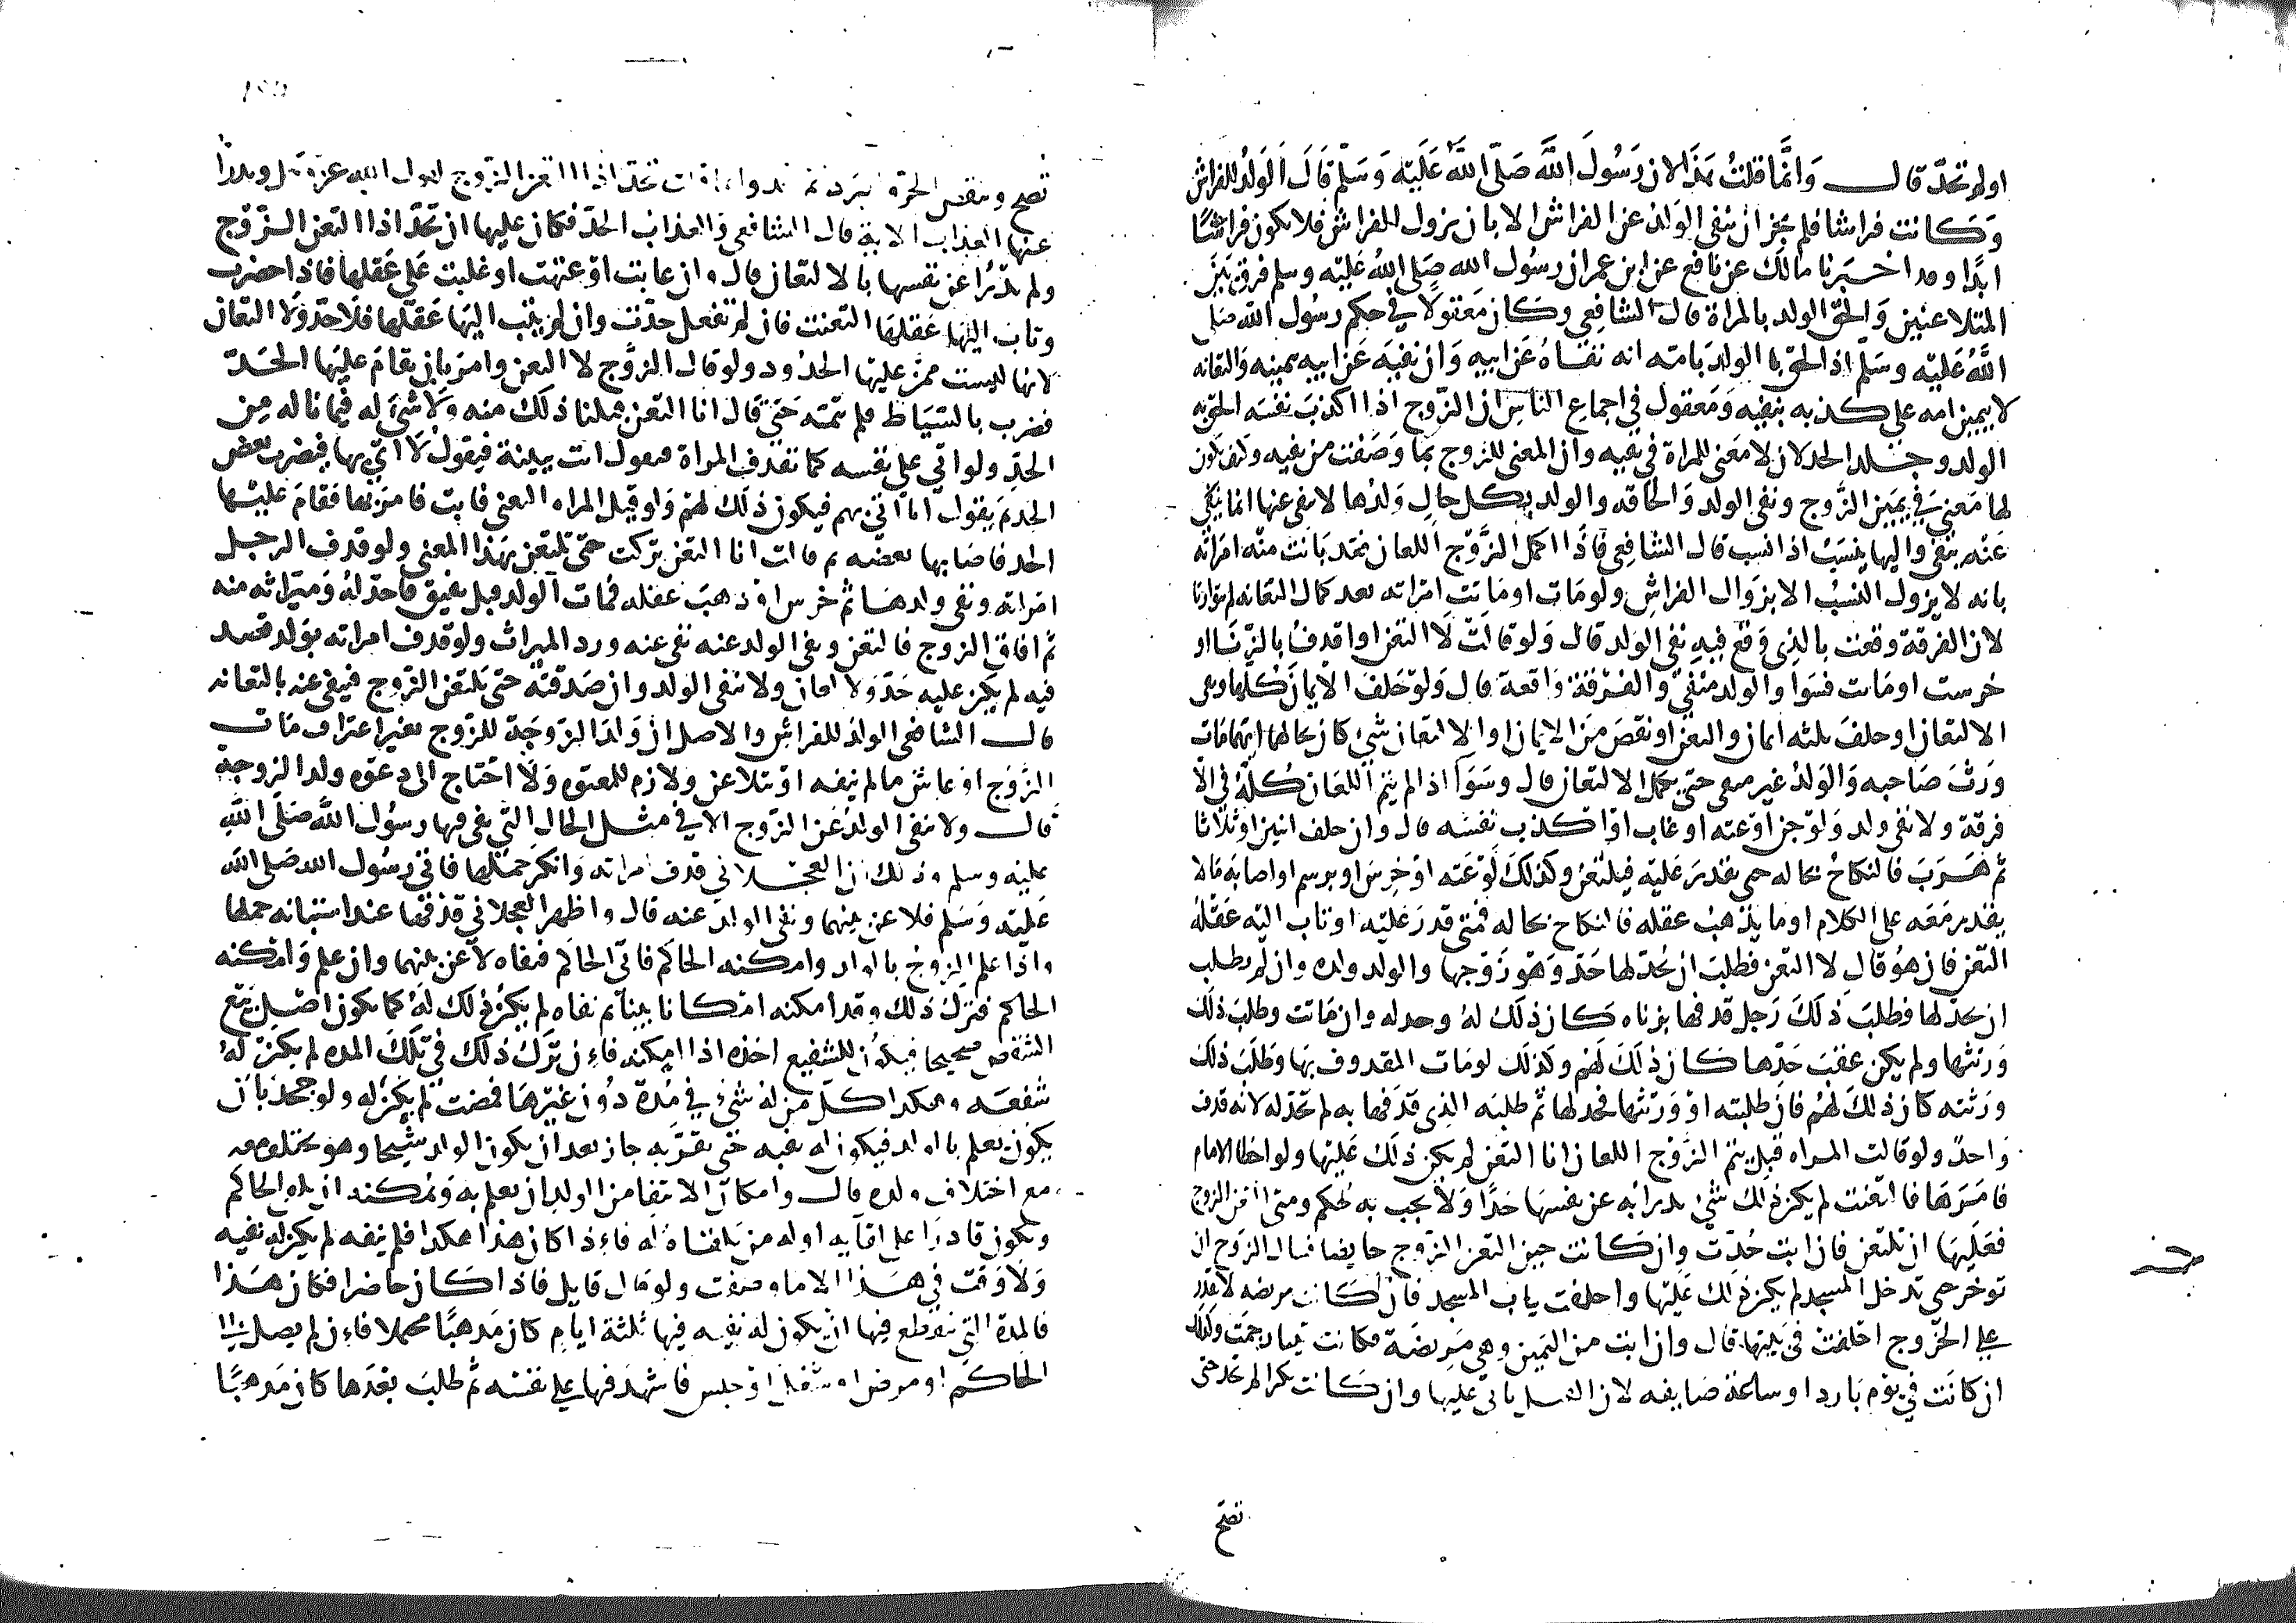 اولم تحد قال وَانَّمَا قلتُ هَذَا لان رَسُولَ اللَّه صَلّى اللَّهُ عَلَيْه وَسَلّم قَالَ اَلوَلدُ للفراش
وَكَانت فراشا فلم يجز ان ينفى الوَلد عن الفراش الا بان يزول الفراش فلا يكون فراشًا
ابدًا وقد اخبَرنا مالك عن نافع عن ابن عمر ان رسُول الله صَلى اللهُ عَليه وسلم فرق بَيْنَ
المتلاعنين وَالحق الولد بالمراة قال الشافِعى وكَان مَعقولاً في حكم رسُول الله صَلى
اللَّهُ عَليْه وسَلم اذ الحق الولدَ بامّه انه نفاهُ عَن ابيهِ وَان نفيَه عَن ابيه بيمينه وَالتعانه
لا بيمين امه على كذبه بنفيه وَمَعقول في اجماع الناسِ ان الزّوج اذا اكذبَ نفسَه الحق به
الولد وجلد الحد لان لا مَعنى للمراة في نفيه وان المعنى للزوج بما وَصَفت من نفيه وكيف يكون
لها مَعنى في يمين الزّوج ونفى الولد وَالحاقه والولد بكل حالٍ وَلدُها لا ينفى عنها انما
عَنه ينفى واليها ينسَبُ اذا نسب قال الشافِعى فاذَا اكمل الزّوج اللعان فقد بَانت منه امرَاته
بانه لا يزول النسبُ الا بزوال الفراشِ ولو مَات او مَاتت امرَاته بعد كمال التعانه لم يتوارثا
لان الفرقة وقعت بالذى وَقع فيهِ نفى الوَلد قال وَلو قالت لا التعن او اقذفُ بالزّنَا او
خرست او مَاتت فسَوا والولد منفىّ والفُرقة واقعة قال وَلو حَلف الايمَانَ كلها وبقى
الالتعان او حلفَ ثلثه ايمان والتعن او نقصَ منَ الايمان او الالتعان شئ كان بحالهما ايهما مَات
وَرثَ صَاحبه وَالوَلدُ غير منفى حتّى يكمل الالتعان قال وسَوَا اذا لم يتم اللعَان كلّهُ في الا
فرقة ولا نفى ولد وَلو جن او عته او غاب او اكذب نفسَه قال وان حلف اثنين او ثلاثا
ثم هَرَبَ فالنكاحُ بحاله حتى يقدرَ عَليْه فيلتعن وكذلكَ لَوْ عَته اوْ خرِسَ او برسم او اصابَه مَا لا
يقدر مَعَه على الكلام او ما يذهبُ عقله فالنكاح بحاله فمتى قدرَ عَليْه او ثاب اليه عَقله
التعن فان هوُ قال لا التعن فطلبَت ان يحَدّ لها حَدّ وَهوَ زَوْجها والولد ولده وان لم تطلب
ان يحَدّ لها فطلبَ ذَلَكَ رَجل قذفها بزناه كَان ذلكَ لهُ وحد له وان مَاتت وطلبَ ذلك
وَرَثتها ولم يكن عفت حَدّها كَان ذلَكَ لَهُم وكذلَك لو مَات المقذوف بهَا وَطلبَ ذلكَ
ورَثته كان ذلكَ لَهُم فان طلبته اوْ وَرَثتها فحد لها ثمّ طلبه الذى قذفها به لم يحَدّ له لانه قذف
وَاحدٌ ولو قالت المراه قبل يتم الزّوْج اللعان انا التعن لم يكن ذلكَ عَليْها ولو اخطا الامام
فامَرَهَا فالتعَنت لم يكن ذلك شئ يدرا به عن نفسِهَا حَدًا وَلا يجب به حُكم ومتى التعن الزوج
فعَليهَا ان تلتعن فان ابت حُدّت وان كَانت حين التعن الزوج حايضا فسال الزوج ان
توخر حتى تدخل المسجد لم يكن ذلك عَليْها واحلفت بباب المسجد فان كَانت مريضه لا تقدر
على الخروج احلفت في بَيتها قال وان ابت من اليَمين وهى مَريضَة فكانت ثيبا رجمت وكذلك
ان كانَت في يوْم بَارد او ساعَة صَايفه لان القتل ياتى عليها وان كَانت بكرا لم تحد حتى
تصح
تصح وينقضى الحرّ والبرد ثم تحد وانما قلت تحَدّ اذا التعن الزّوج لقول الله عز وجَل ويدرا
عنها العذاب الاية قال الشافعى وَالعذاب الحدّ فكان عليها ان تحَدّ اذا التعن الزّوْج
ولم تدرَا عن نفسها بالالتعان قال وان غابت اوْ عتهت او غلبت عَلى عَقلها فاذا حضرت
وثاب اليْهَا عَقلهَا التعنت فان لم تفعل حدّت وان لم يثب اليهَا عَقلها فلا حدّ وَلا التعان
لانها ليست ممن عليْها الحدُود ولو قال الزوّج لا التعن وامرَ بان يقامَ عليْها الحَدّ
فضرب بالسّيَاط فلم تتمّه حَتى قَال انا التعن قبلنا ذلك منه وَلا شئ له فيما ناله من
الحدّ ولو اتى على نفسه كما تقذف المراة فيقول ائت ببينة فيقول لا اتى بها فيضرب بعض
الحد ثم يقول انا اتى بهم فيكون ذلَك لهم وَلو قيل للمراه التعنى فابت فامرَ بهَا فقامَ عَليْها
الحد فاصَابها بعضه ثم قالت انا التعن تركت حتّى تلتعن بهَذا المعنى ولو قذف الرجل
امَراته ونفى ولدهَا ثمّ خرس اوْ ذهبَ عقله فمَات الولد قبل يفيق فاخذ لهُ وَميرَاثه منه
ثم افاق الزوج فالتعن ونفى الولد عنه نفى عنه ورد الميراث ولو قذف امراته بوَلد فصد
فيه لم يكن عليه حَدّ وَلا لعان ولا ينفى الولد وان صَدقته حَتى يَلتعن الزّوج فينفى عنه بالتعانه
قال الشافعى الولدُ للفراشِ والاصل ان وَلدَ الزوجَة للزّوج بغير اعتراف مَات
الزّوج او عاش ما لم ينفه اوْ يتلاعن ولازم للمعتوه وَلا احتاج الى دعوَه ولد الزوجة
قال ولا ينفى الولدُ عَن الزوج الا في مثل الحال التّى نفى فيها رسُول اللَّه صَلَّى اللَّهِ
عليْه وسلم وذلك ان العجلانىّ قذف امراته وَانكر حمَلها فاتى رَسُول الله صَلى الله
عَليْه وَسَلم فلاعن بينهما ونفى الولد عنه قال واظهر العجلانى قذفها عند استبانه حملها
واذا علم الزوج بالولد وامكنه الحاكم فاتى الحاكم فنفاه لاعن بينهما وان علم وَامْكنه
الحاكم فترك ذلك وقد امكنه امْكانا بينا ثم نفاه لم يكن ذلك لَهُ كما يكون اصل بيع
الشقص صحيحا فيكُون للشفيع اخذه اذا امكنه فاءن تَركَ ذلك في تلكَ المده لم يكن لهُ
شفعَه وهكذا كلّ من له شئ في مُدّة دُون غيْرهَا فمضت لم يكن له ولو جحَد بان
يكون يعلم بالولد فيكون له نفيه حَتى يقرّ به جاز بعد ان يكون الولد شيخا وهو مختلف معه
مع اختلاف ولده قال وامكان الانتفا من الولد ان يعلم به وَيمْكنه ان يلقى الحاكم
ويكون قادرًا على لقائه او له من يَلقاهُ له فاءذا كان هذا هكذا فلم ينفه لم يكن له نفيه
وَلا وَقت في هَذا الا ما وصفت ولو قال قايل فاذا كَان حاضرا فكان هذا
فالمدة التى ينقطع فيها ان يكون له نفيه فيها ثلثة ايام كان مَذهبًا محتملا فاءن لم يصل الى
الحاكم او مرض او شغل اوْ حبس فاشهدَ فيها على نفسه ثمّ طلبَ بعْدَها كان مَذهبًا